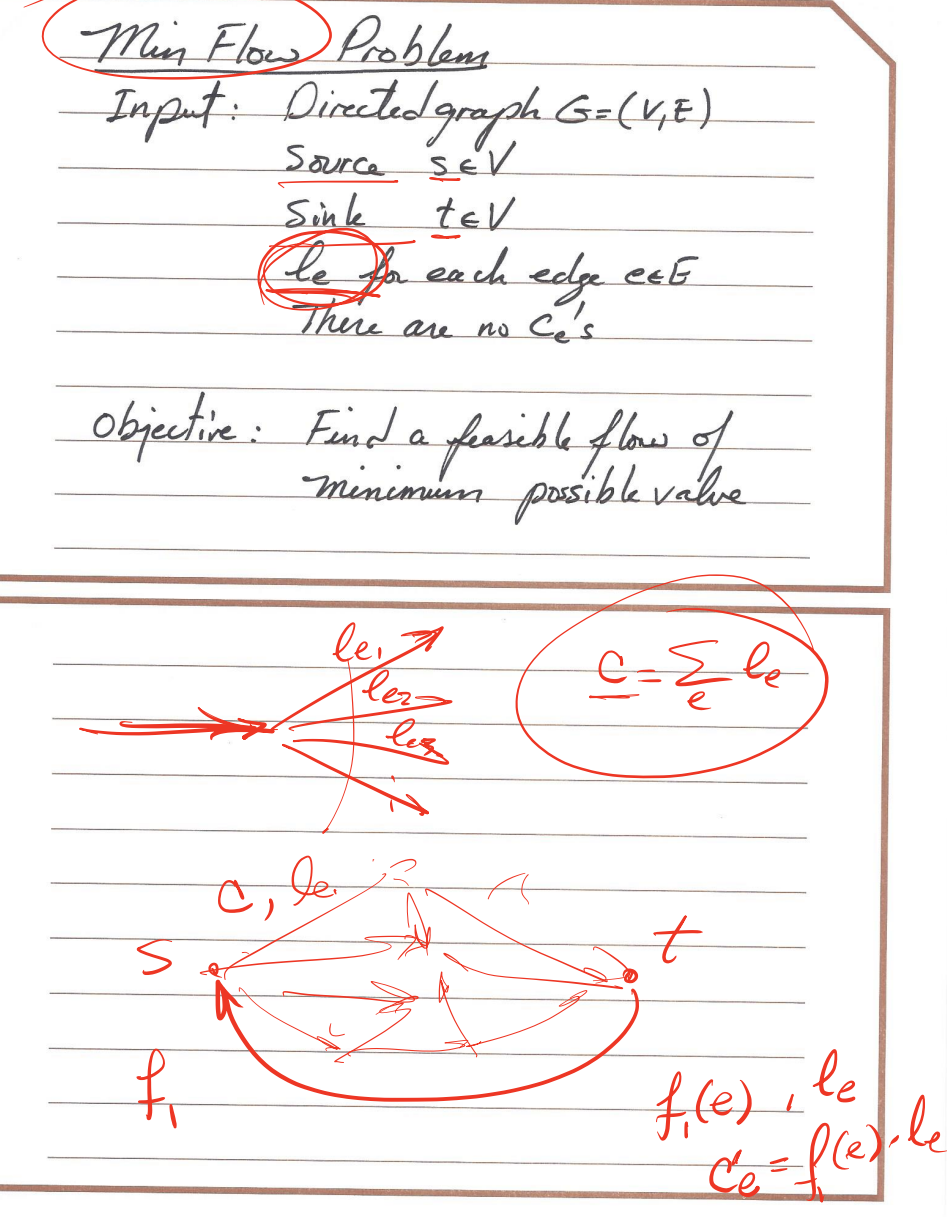 Min Flow Problem
Input: Directed graph G=(V,E)
Source s∈V
Sink t∈V
le for each edge e∈E
There are no Ce's
Objective: Find a feasible flow of
minimum possible value
le1
le2
le3
C = Σ le
e
C, le
S
t
f1
f1(e), le
C'e = f1(e) - le